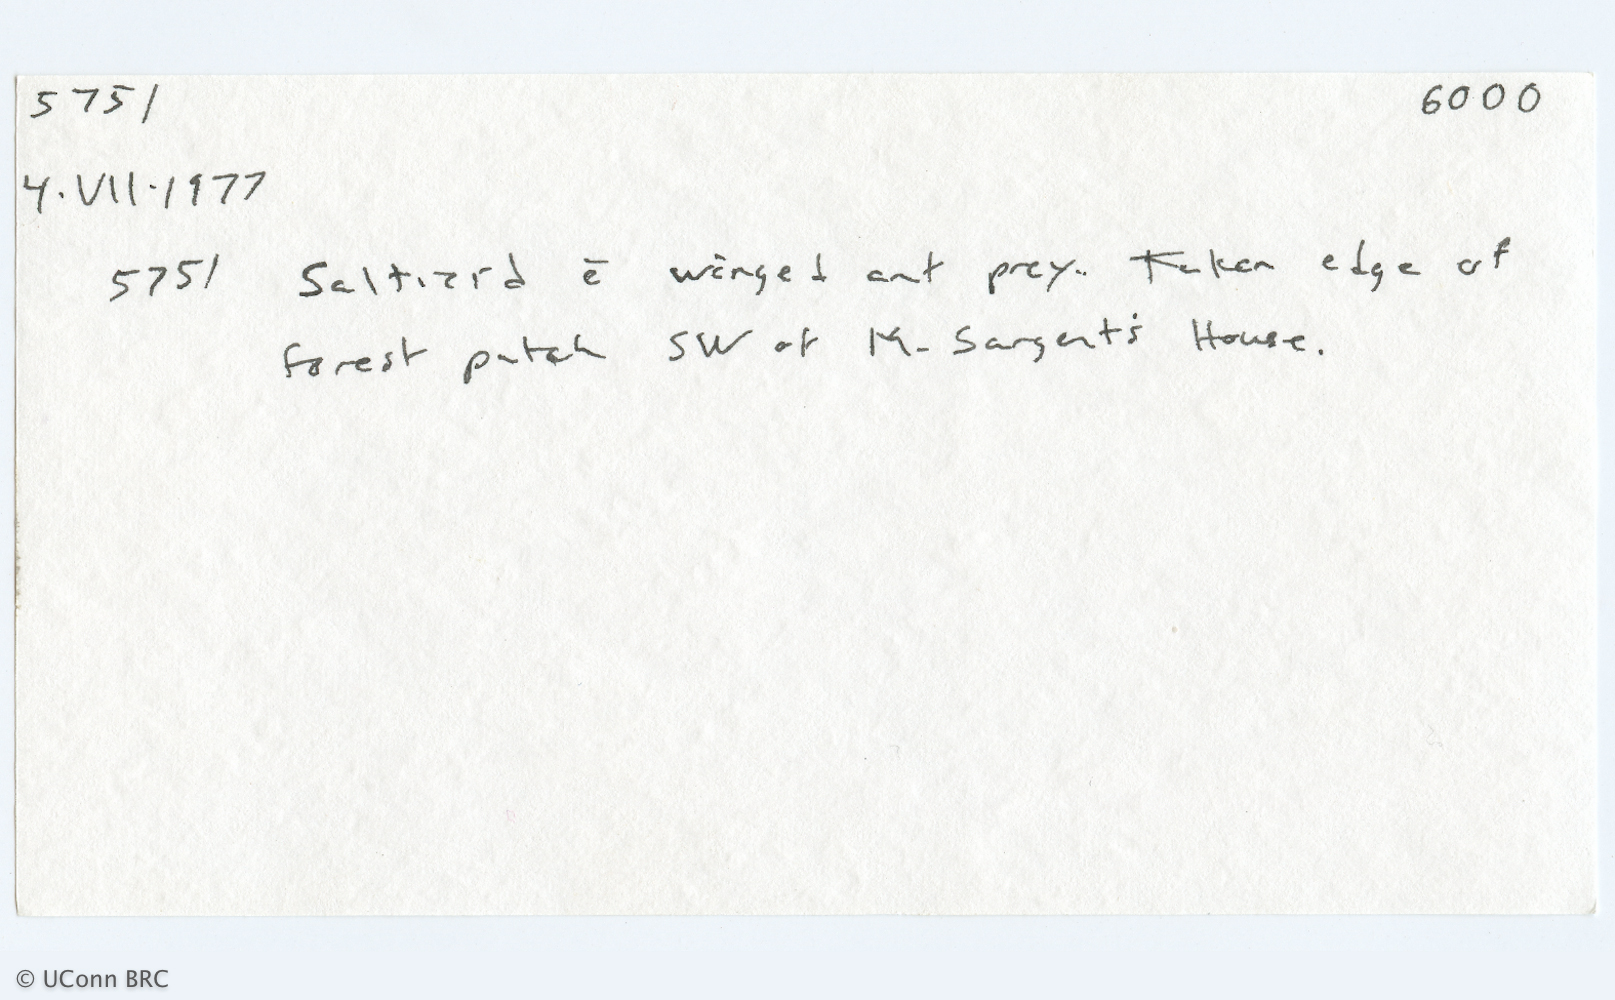 5751 6000
4.VII.1977
5751 Saltizid c̄ winged ant prey. Taken edge of
forest patch SW of M. Sargent's House.
© UConn BRC